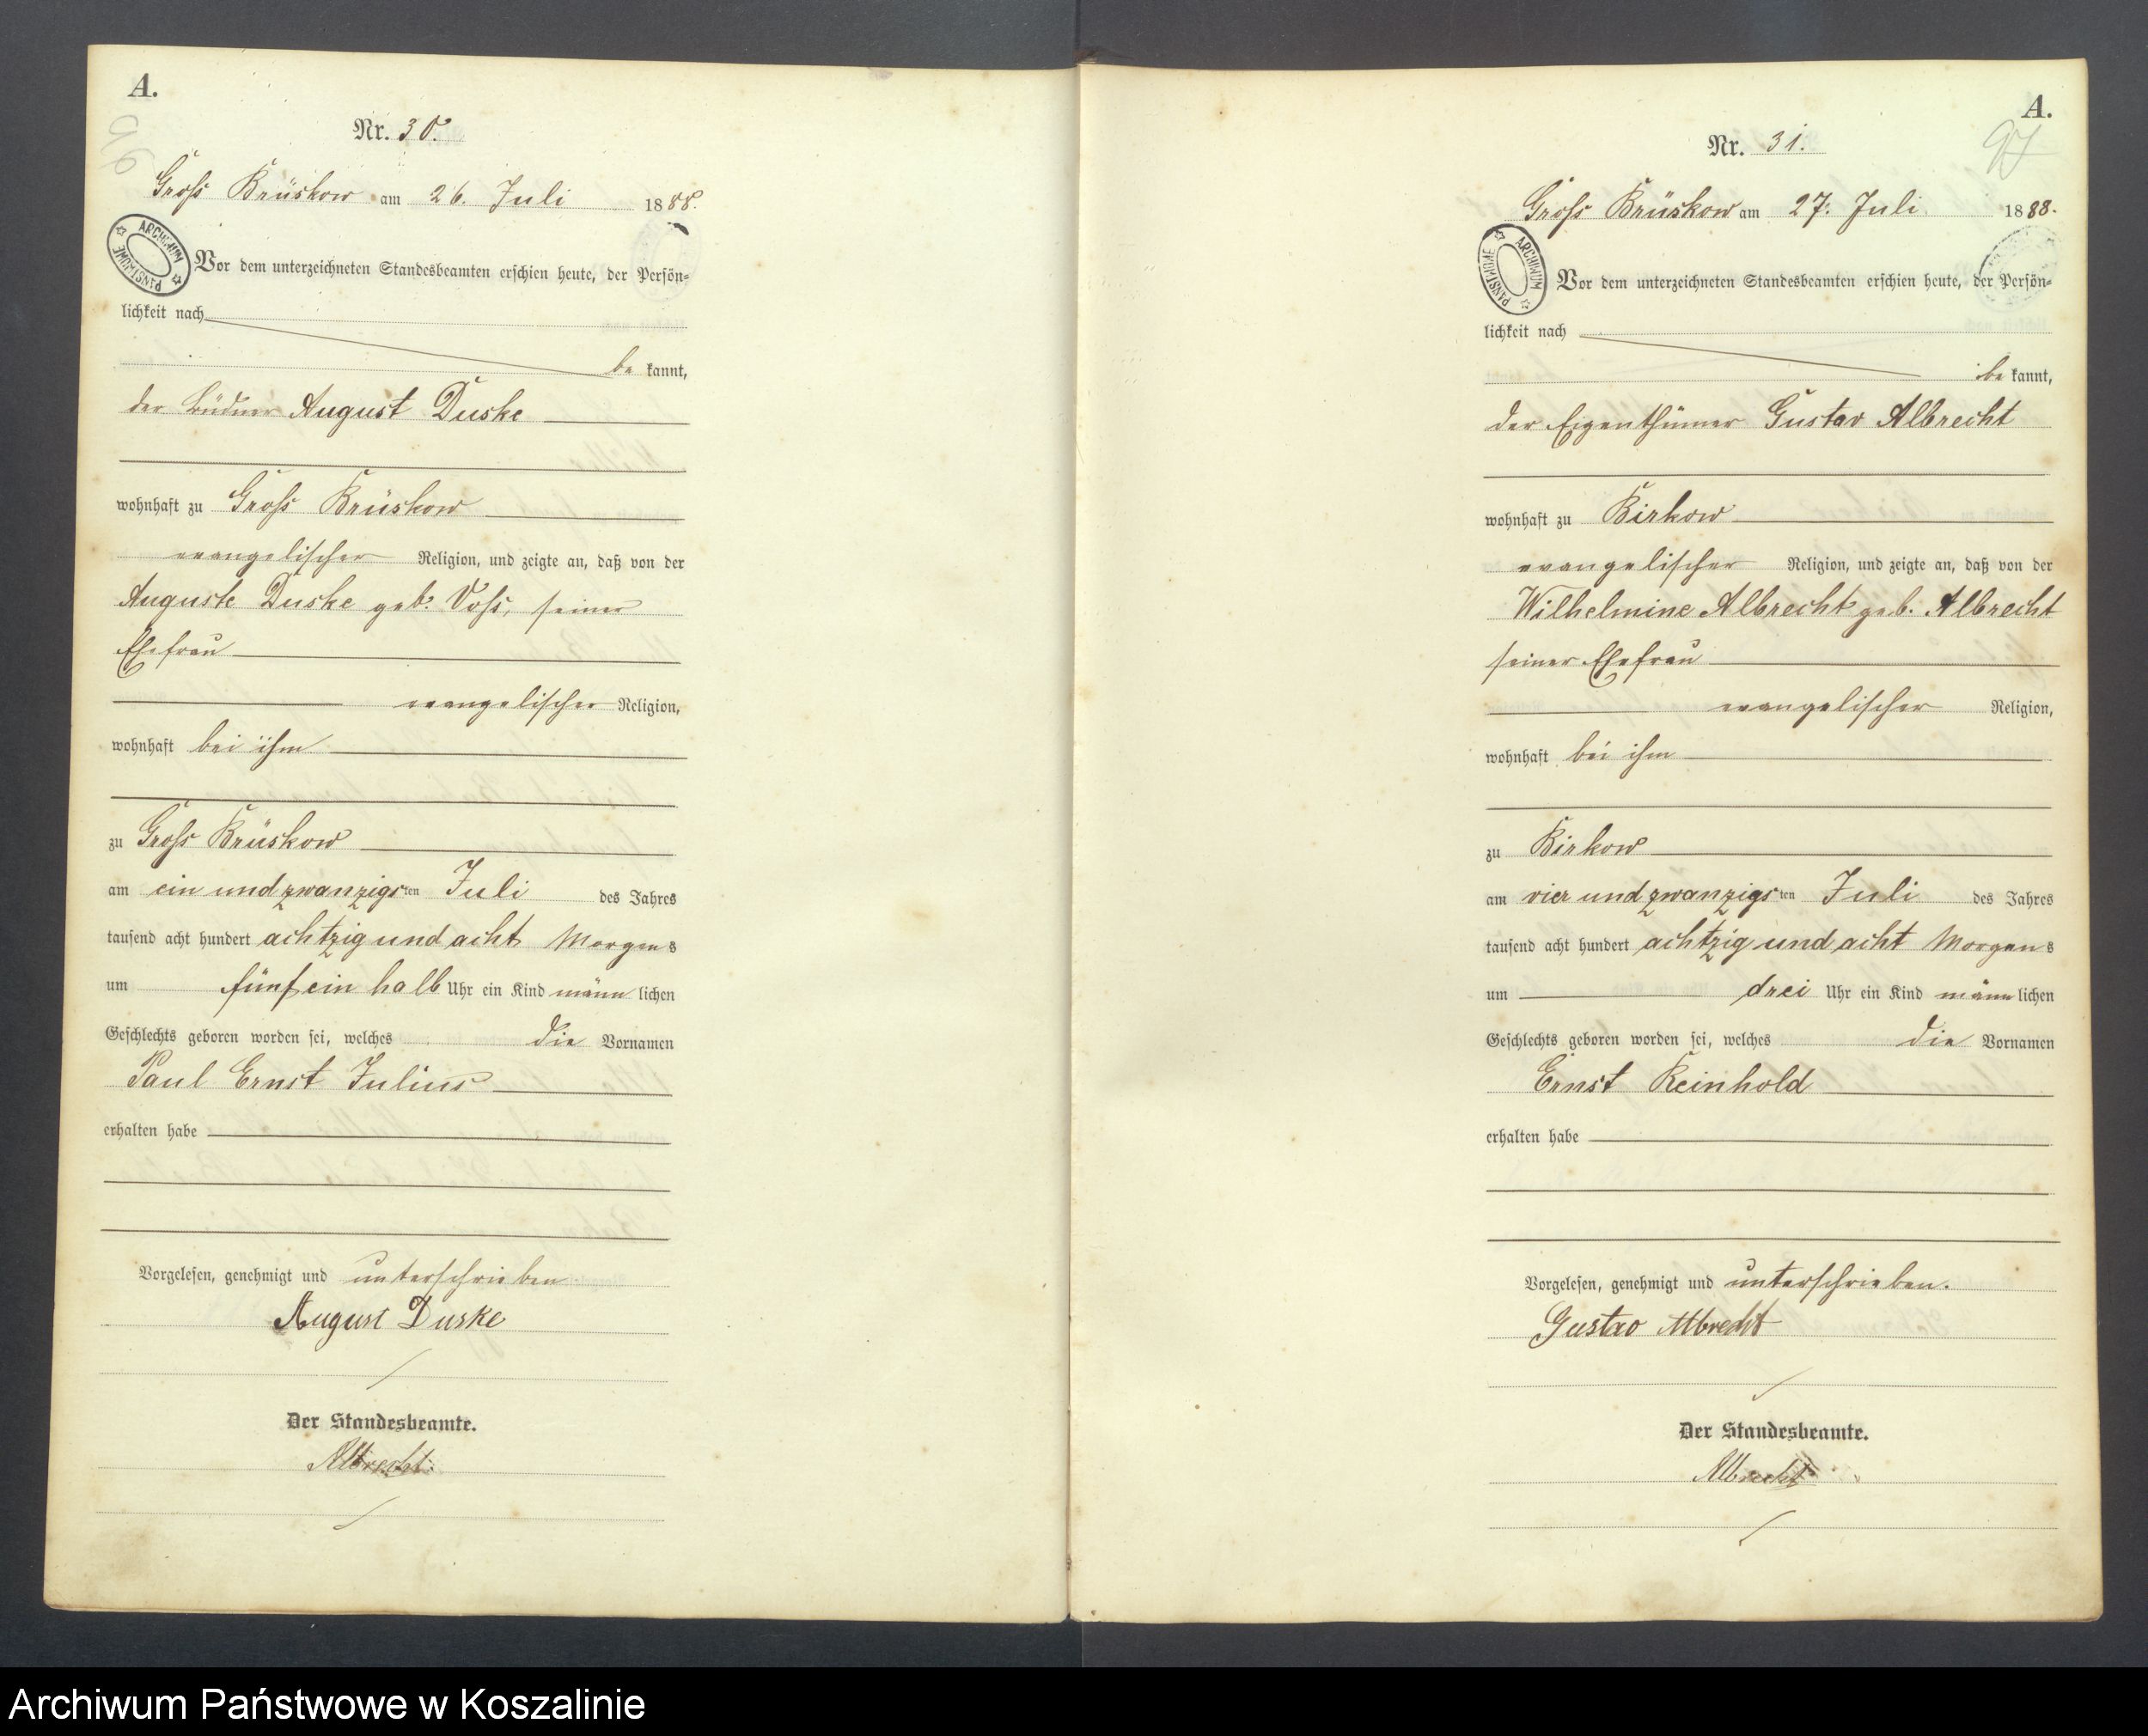 A.
96
Nr. 30.
Gross Brüskow am 26. Juli 1888.
ARCHIWUM PAŃSTWOWE
Vor dem unterzeichneten Standesbeamten erschien heute, der Persön=
lichkeit nach
be kannt,
der Büdner August Duske
wohnhaft zu Gross Brüskow
evangelischer Religion, und zeigte an, daß von der
Auguste Duske geb. Voss, seiner
Ehefrau
evangelischer Religion,
wohnhaft bei ihm
zu Gross Brüskow
am ein und zwanzigsten Juli des Jahres
tausend acht hundert achtzig und acht Morgens
um fünf ein halb Uhr ein Kind männlichen
Geschlechts geboren worden sei, welches die Vornamen
Paul Ernst Julius
erhalten habe
Vorgelesen, genehmigt und unterschrieben
August Duske
Der Standesbeamte.
Albrecht.
A.
97
Nr. 31.
Gross Brüskow am 27. Juli 1888.
ARCHIWUM PAŃSTWOWE
Vor dem unterzeichneten Standesbeamten erschien heute, der Persön=
lichkeit nach
be kannt,
der Eigenthümer Gustav Albrecht
wohnhaft zu Birkow
evangelischer Religion, und zeigte an, daß von der
Wilhelmine Albrecht geb. Albrecht
seiner Ehefrau
evangelischer Religion,
wohnhaft bei ihm
zu Birkow
am vier und zwanzigsten Juli des Jahres
tausend acht hundert achtzig und acht Morgens
um drei Uhr ein Kind männlichen
Geschlechts geboren worden sei, welches die Vornamen
Ernst Reinhold
erhalten habe
Vorgelesen, genehmigt und unterschrieben.
Gustav Albrecht
Der Standesbeamte.
Albrecht
Archiwum Państwowe w Koszalinie